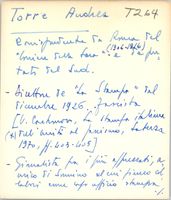 Torre Andrea T264
Corrispondente da Roma del
"Corriere della Sera" (1906-1916) e depu-
tato del Sud.
- Direttore de "La Stampa" dal
dicembre 1926. fascista
[V. Castronovo, La stampa italiana
dall'unità al fascismo, Laterza
1970, pp. 403-405]
- Giornalista fra i più apprezzati, a-
mico di
come capo ufficio stampa.
./.